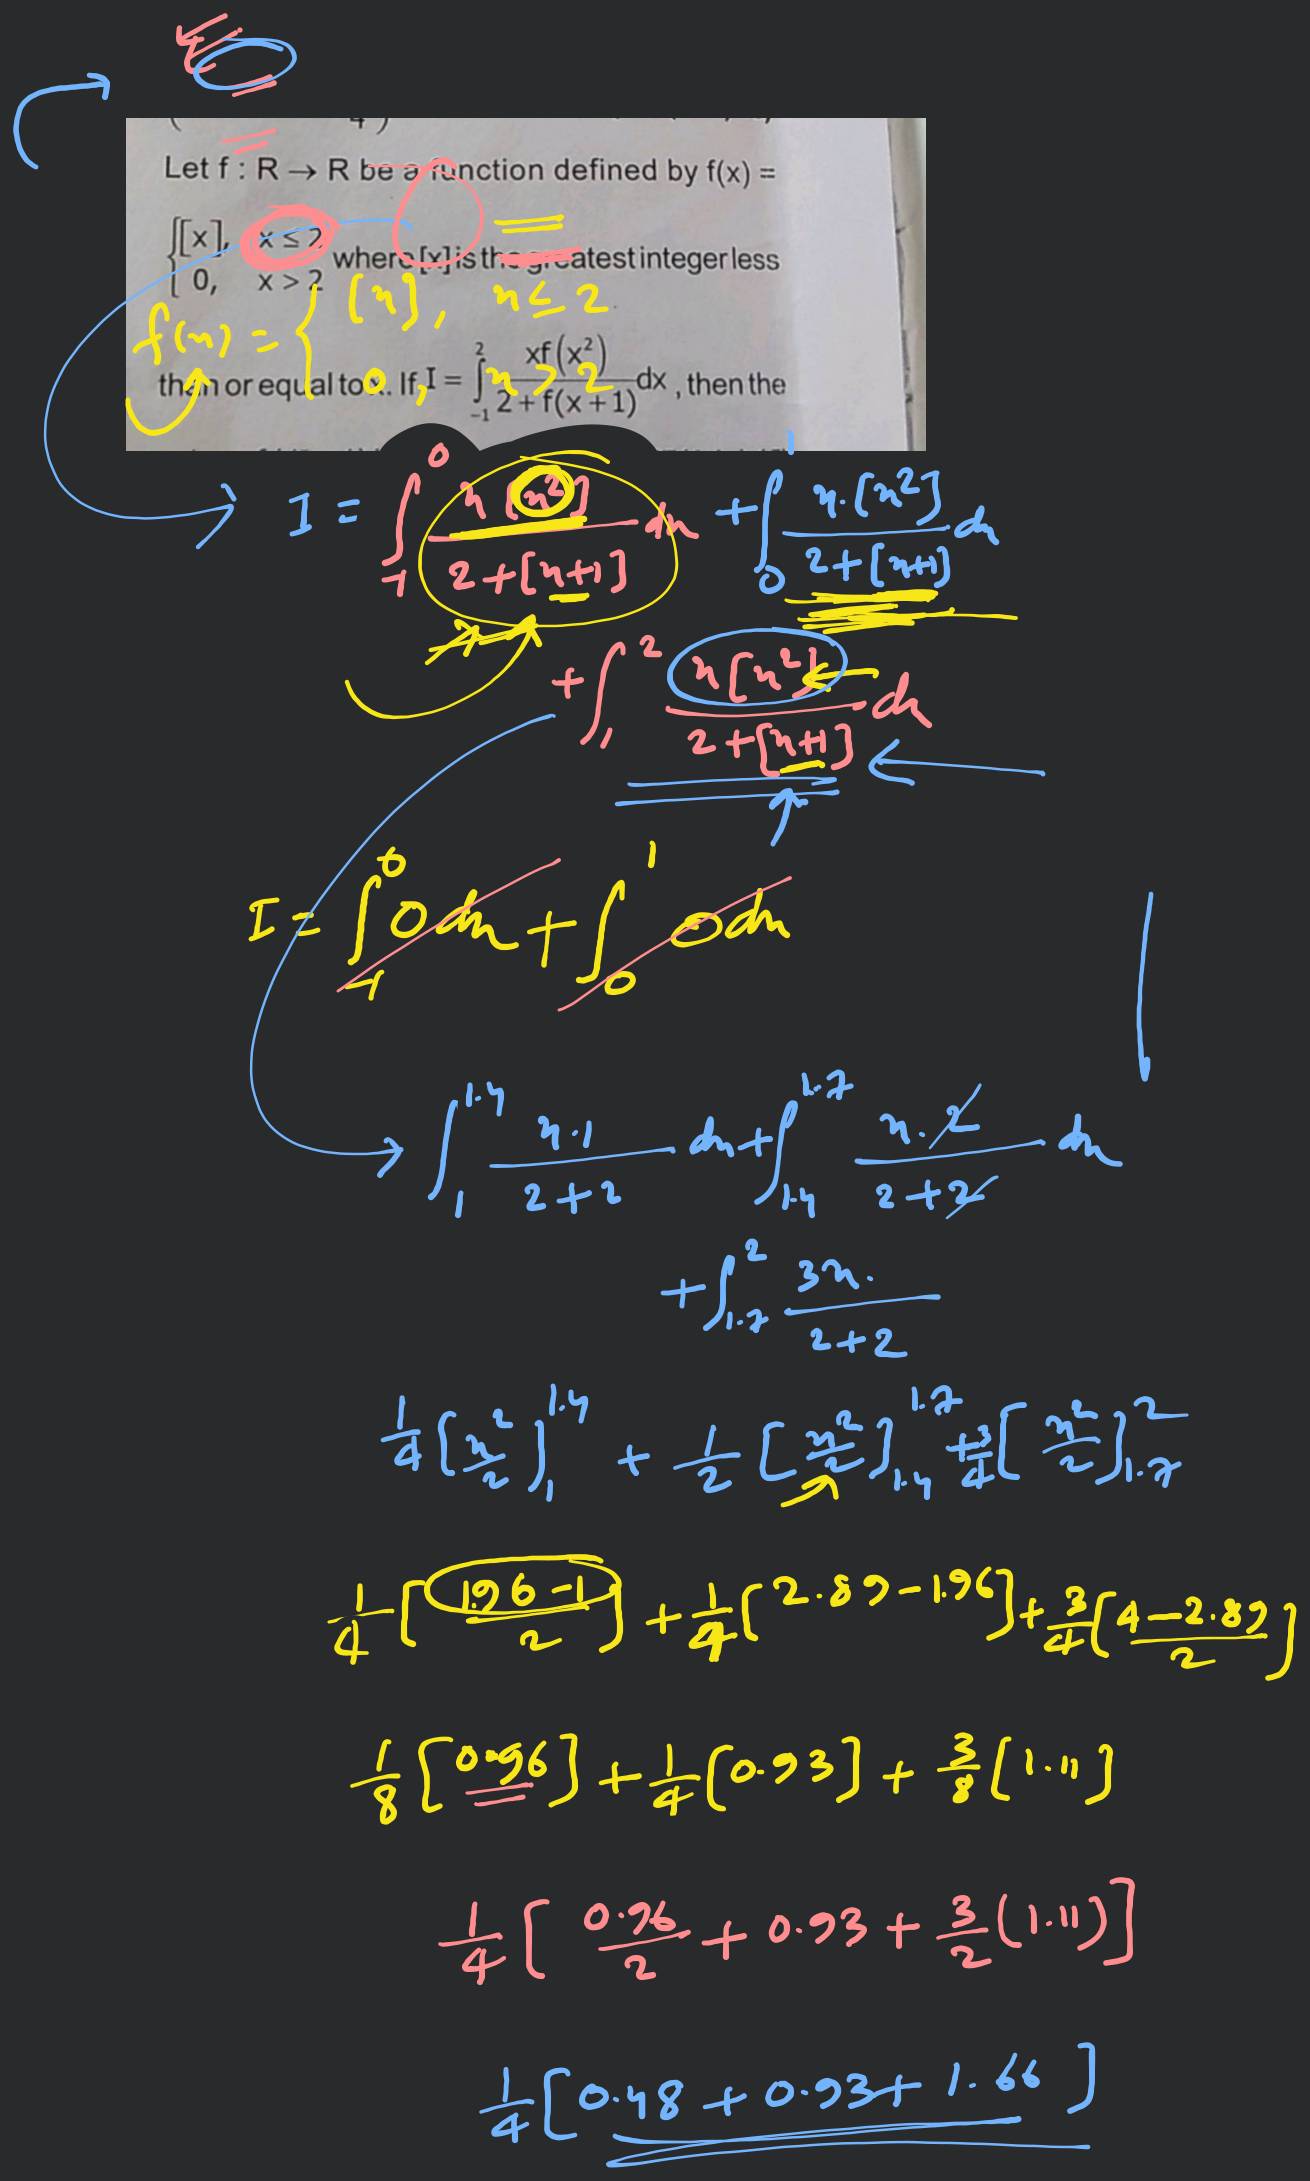 Let f : R → R be a function defined by f(x) =
{[x], x ≤ 2
0, x > 2 where [x] is the greatest integer less
f(x) = { [x], x ≤ 2
0, x > 2
than or equal to x. If, I = ∫_{-1}^{2} xf(x²)/(2+f(x+1)) dx, then the
I = ∫_{-1}^{0} x[x²]/(2+[x+1]) dx + ∫_{0}^{1} x·[x²]/(2+[x+1]) dx
+ ∫_{1}^{2} x[x²]/(2+[x+1]) dx
I = ∫_{-1}^{0} 0dx + ∫_{0}^{1} 0dx
∫_{1}^{1.4} x·1/(2+2) dx + ∫_{1.4}^{1.7} x·2/(2+2) dx
+ ∫_{1.7}^{2} 3x·/(2+2)
1/4 [x²/2]_{1}^{1.4} + 1/2 [x²/2]_{1.4}^{1.7} + 3/4 [x²/2]_{1.7}^{2}
1/4 [(1.96-1)/2] + 1/4 [2.89-1.96] + 3/4 [(4-2.89)/2]
1/8 [0.96] + 1/4 [0.93] + 3/8 [1.11]
1/4 [0.96/2 + 0.93 + 3/2 (1.11)]
1/4 [0.48 + 0.93 + 1.66]